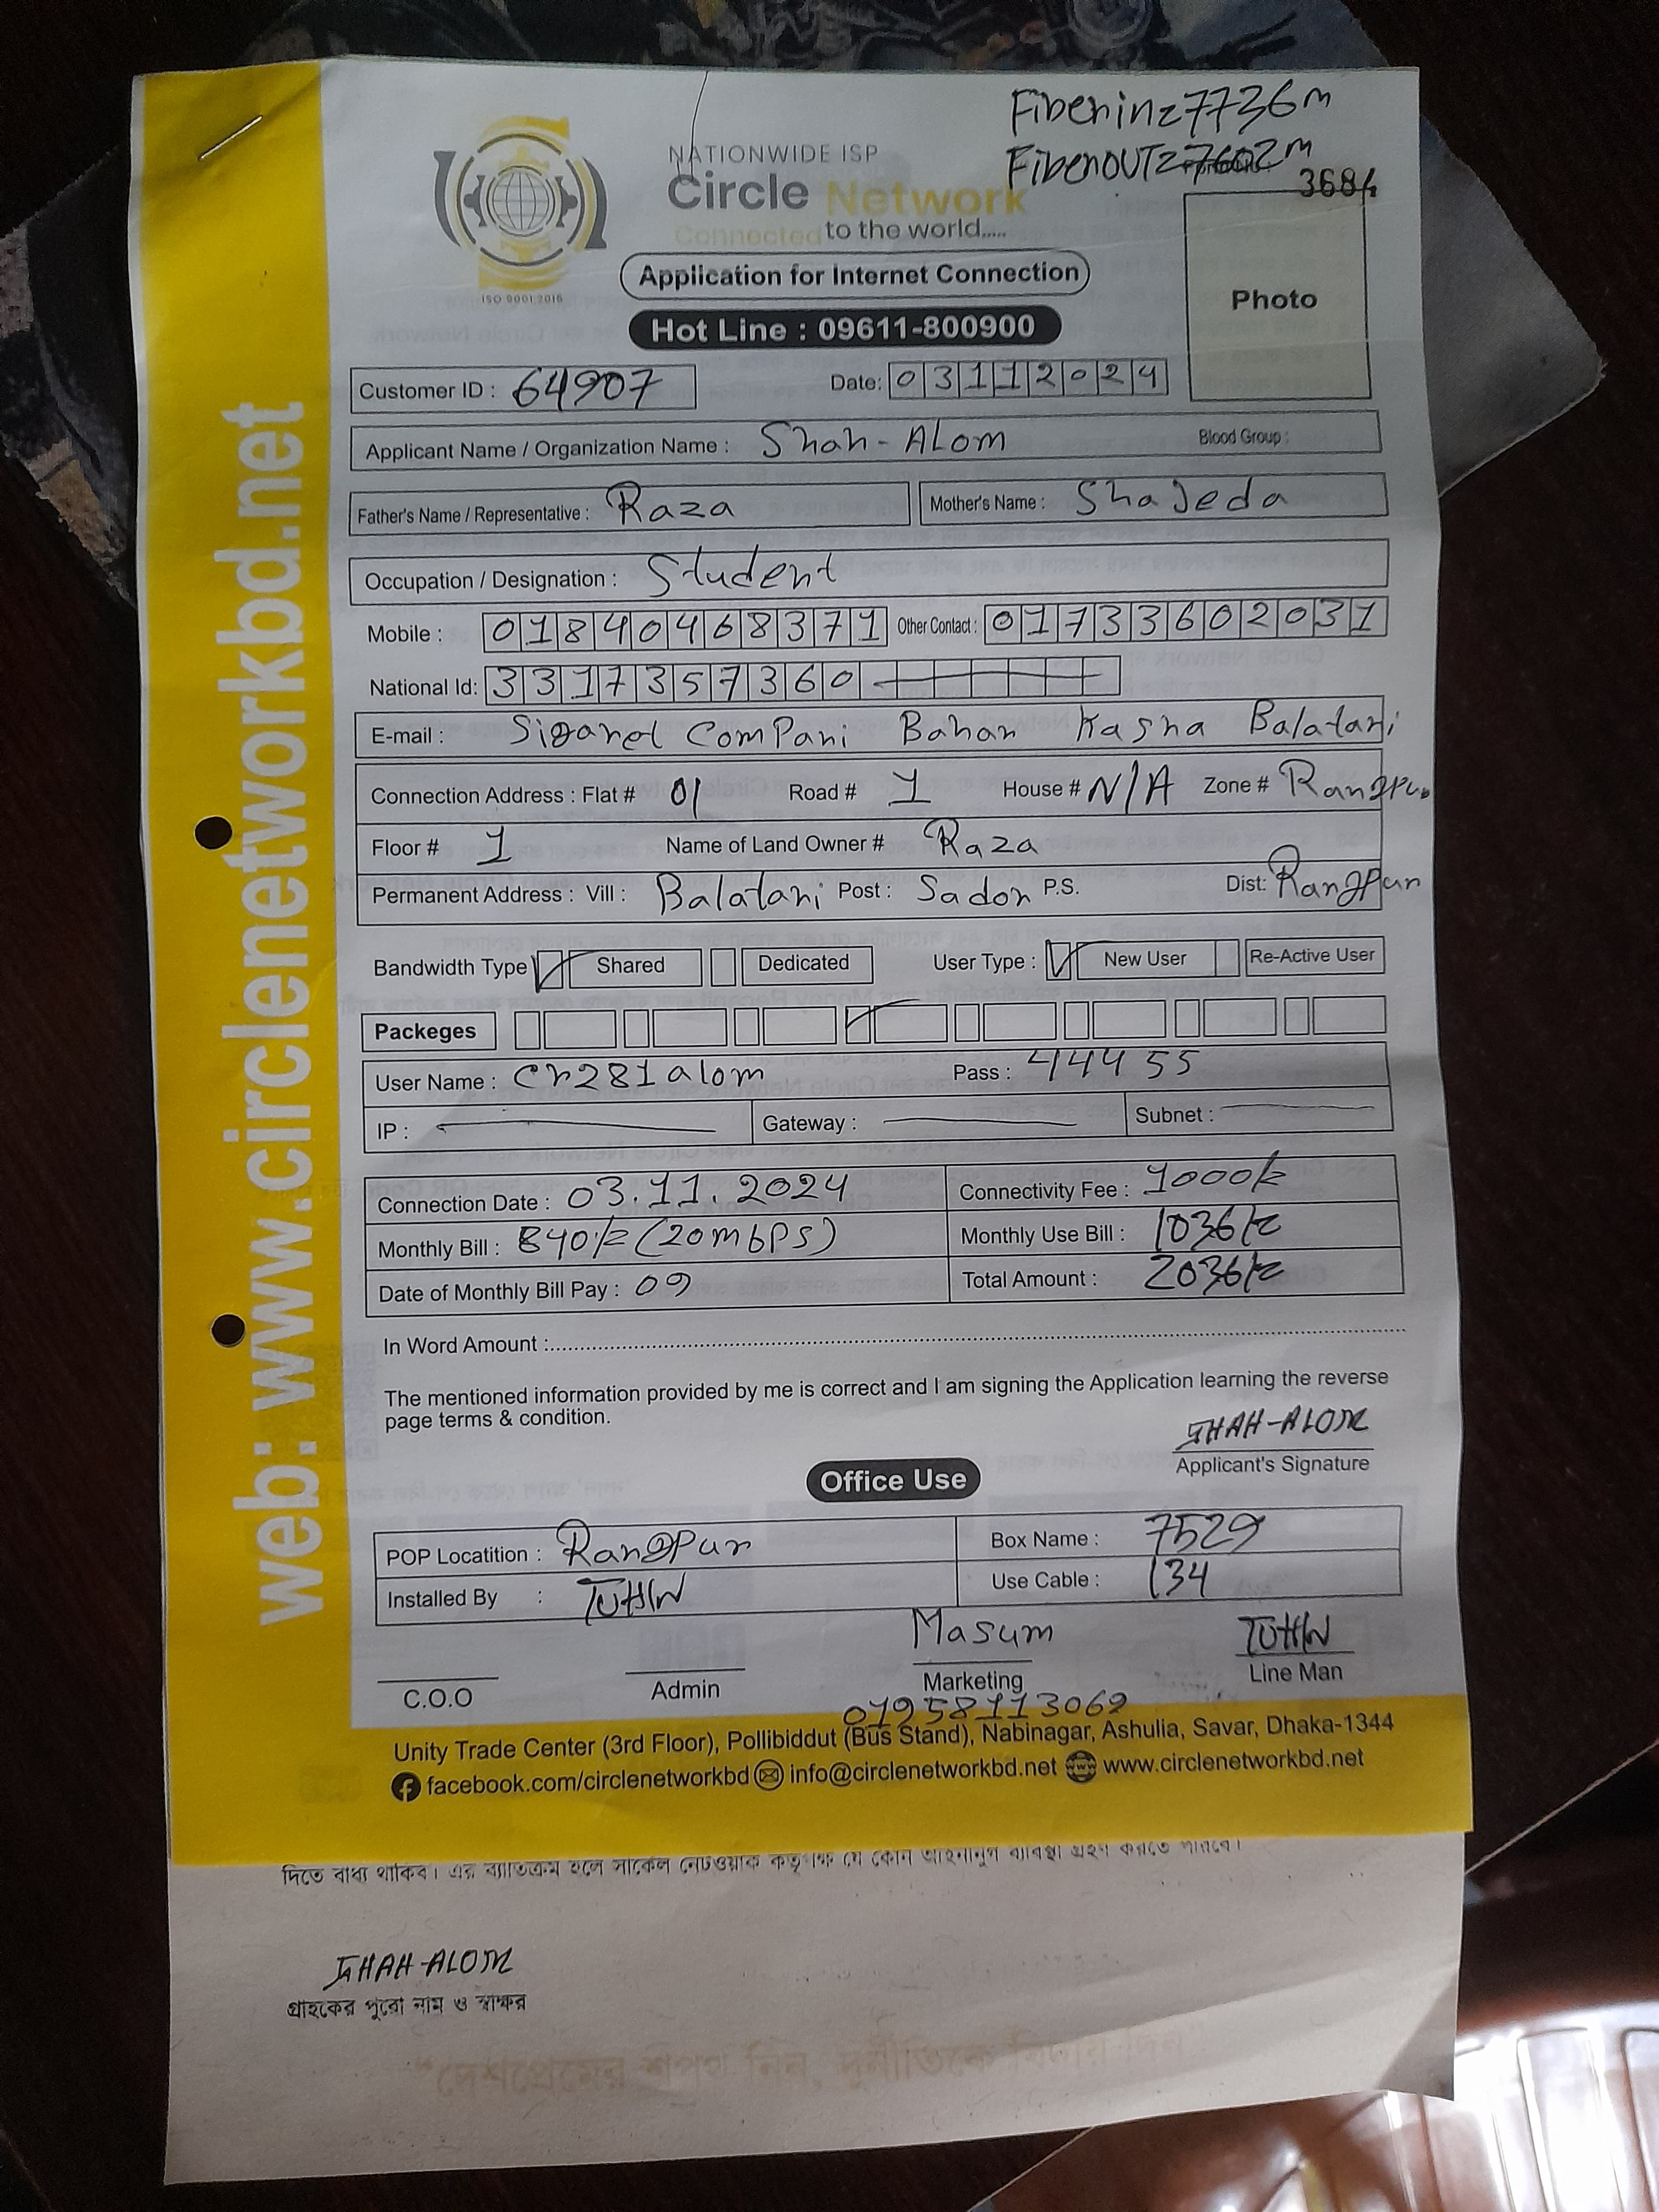 Fiberin=7736m
FiberOUT=7602m
3684
NATIONWIDE ISP
Circle Network
Connected to the world.....
ISO 9001:2015
Application for Internet Connection
Hot Line : 09611-800900
Photo
Customer ID : 64907 Date: 03112024
Applicant Name / Organization Name : Shah-ALom Blood Group :
Father's Name / Representative : Raza Mother's Name : ShaJeda
Occupation / Designation : Student
Mobile : 01840468371 Other Contact : 01733602031
National Id: 3317357360
E-mail : Sigaret ComPani Bahar Kasna Balatari
Connection Address : Flat # 01 Road # 1 House # N/A Zone # Rangpur
Floor # 1 Name of Land Owner # Raza
Permanent Address : Vill : Balatari Post : Sador P.S. Dist: Rangpur
Bandwidth Type Shared Dedicated User Type : New User Re-Active User
Packeges
User Name : cr281alom Pass : 44455
IP : Gateway : Subnet :
Connection Date : 03.11.2024 Connectivity Fee : 1000/=
Monthly Bill : 840/= (20mbps) Monthly Use Bill : 1036/=
Date of Monthly Bill Pay : 09 Total Amount : 2036/=
In Word Amount :
The mentioned information provided by me is correct and I am signing the Application learning the reverse
page terms & condition.
SHAH-ALOM
Applicant's Signature
Office Use
POP Locatition : Rangpur Box Name : 7529
Installed By : TUHIN Use Cable : 134
Masum TUHIN
C.O.O Admin Marketing Line Man
01958113069
Unity Trade Center (3rd Floor), Pollibiddut (Bus Stand), Nabinagar, Ashulia, Savar, Dhaka-1344
facebook.com/circlenetworkbd info@circlenetworkbd.net www.circlenetworkbd.net
web: www.circlenetworkbd.net
দিতে বাধ্য থাকিব। এর ব্যতিক্রম হলে সার্কেল নেটওয়ার্ক কর্তৃপক্ষ যে কোন আইনানুগ ব্যবস্থা গ্রহণ করতে পারবে।
SHAH-ALOM
গ্রাহকের পুরো নাম ও স্বাক্ষর
"দেশপ্রেমের শপথ নিন, দুর্নীতিকে বিদায় দিন"